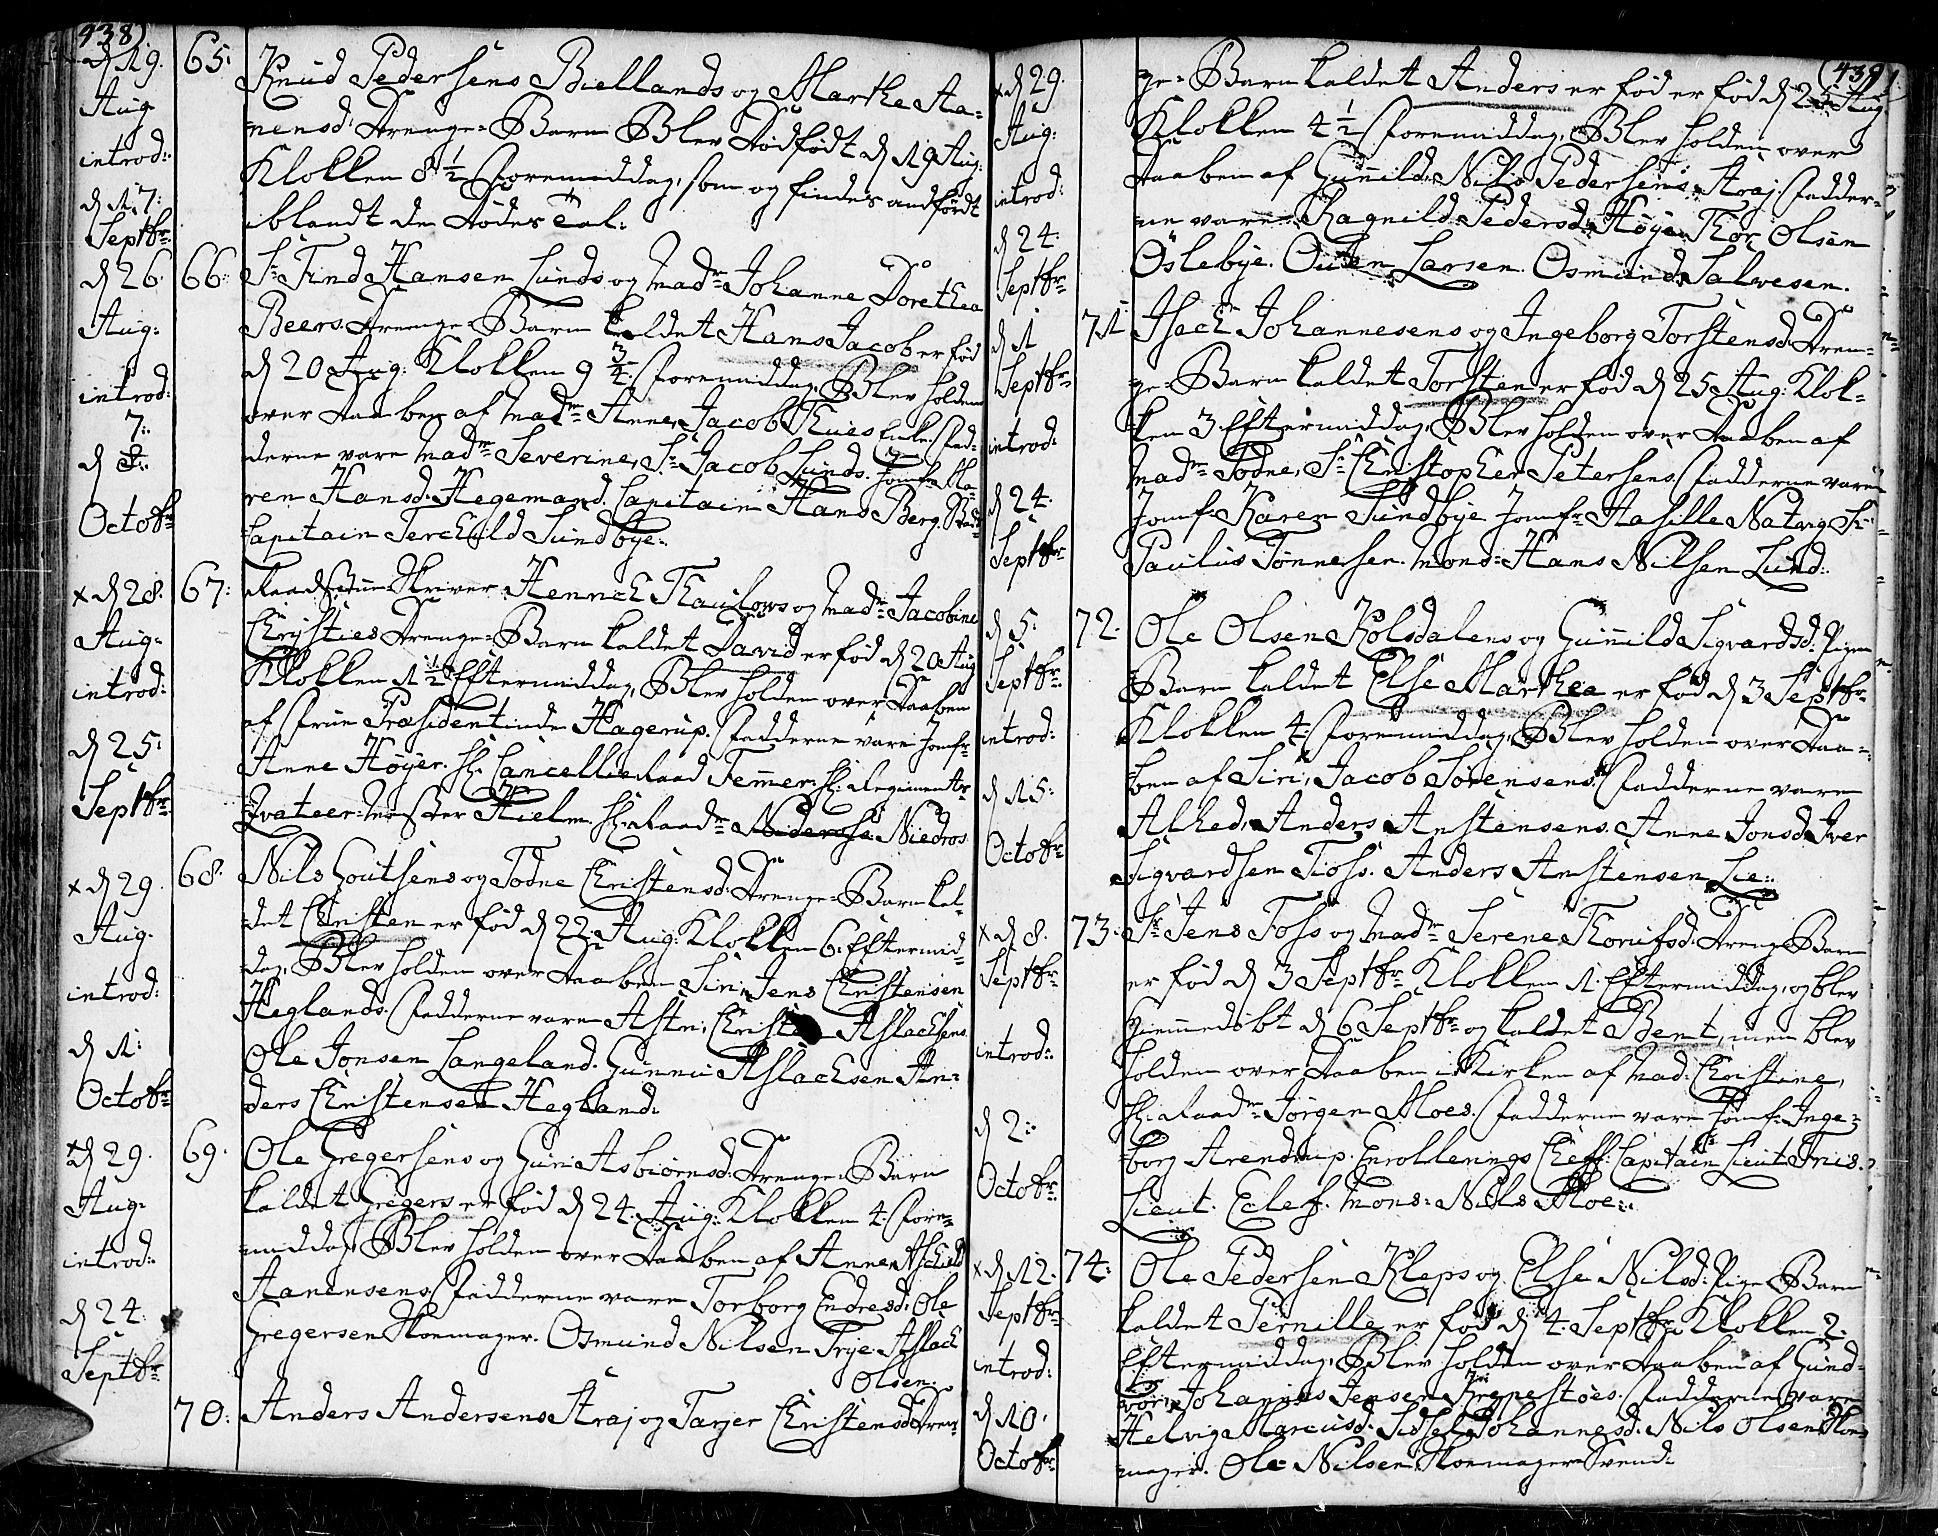 (438)
d 19.
Aug
introd:
d 17:
Septbr:
65:
Knud Pedersens Biellands og Marthe Aa-
nensd: Drenge-Barn Blev Dødfødt d 19 Aug:
Klokken 8 1/2 Formiddag, som og findes andført
iblandt de Dødes Tal:
d 26.
Aug:
introd:
7:
d
Octobr
66:
Sr Find Hansen Lunds og Madme Johanne Dorethea
Beers Drenge-Barn kaldet Hans Jacob er fød
d 20 Aug: Klokken 9 3/4 Formiddag, Blev holden
over Daaben af Madme Anne, Jacob Thues Enke: Fad-
derne vare Madme Severine, Sr Jacob Lunds. Jomfr Ma-
ren Hansd: Hegemand. Capitain Hans Berg. Stads
Capitain Terchild Sundbye:
x d 28.
Aug:
introd:
d 25:
Septbr
67:
Raadstue-Skriver Hennich Thaulows og Madme Jacobine
Chrysties Drenge-Barn kaldet David er fød d 20 Aug
Klokken 1 1/2 Eftermiddag, Blev holden over Daaben
af Frue Præsidentinde Hagerup. Fadderne vare Jomfr
Anne Høyer. Hr Cancellieraad Temmer. Hr: Regiments-
Qvateer-Mester Hielm. Hr Raadm Niedros
x d 29.
Aug.
introd:
d 1:
Octobr
68.
Nils Goutsens og Todne Christensd: Drenge-Barn kal-
det Christen er fød d 22 Aug: Klokken 6. Eftermid-
dag, Blev holden over Daaben Siri, Jens Christensen
Heglands. Fadderne vare Astri, Christen Aslachsens
Ole Jonsen Langeland. Gunnu Aslachsen An-
ders Christensen Hegland:
x d 29.
Aug.
introd:
d 24.
Septbr
69.
Ole Gregersens og Guri Asbiørnsd: Drenge-Barn
kaldet Gregers er fød d 24. Aug: Klokken 4. Fore-
middag Blev holden over Daaben af Anne, Aschield
Aanensens. Fadderne vare Torborg Endresd: Ole
Gregersen Skoemager. Osmund Nilsen Trye Aslach
Olsen.
70:
Anders Andersens Straj og Tarjer Christensd: Dren-
(439)
x d 29.
Aug:
introd:
d 24.
Septbr
ge-Barn kaldet Anders er fød er fød d 25 Aug
Klokken 4 1/2 Formiddag, Blev holden over
Daaben af Gunnild, Nils Pedersens Straj. Fadder-
ne vare Ragnild Pedersd: Høye Thor Olsen
Oslebye. Outen Larsen. Osmund Salvesen.
d 1
Septbr
introd:
d 24.
Septbr
71
Isach Johannesens og Ingeborg Torstensd: Dren-
ge-Barn kaldet Torsten er fød d 25 Aug: Klok-
ken 3. Eftermiddag, Blev holden over Daaben af
Madme Todne, Sr Christopher Petersens. Fadderne vare
Jomfr Karen Sundbye Jomfr Aasille Natvig Sr
Paulus Tønnesen. Mons: Hans Nilsen Lund:
d 5:
Septbr
introd:
d 15:
Octobr
72:
Ole Olsen Kolsdalens og Gunnild Sigvardsd: Pige
Barn kaldet Else Marthea er fød d 3 Septbr
Klokken 4: Formiddag, Blev holden over Daa-
ben af Siri, Jacob Sørensens. Fadderne vare
Alhed, Anders Anstensens. Anne Jonsd: Iver
Sigvardsen Tioss. Anders Anstensen Lie:
x d 8.
Septbr
introd:
d 2:
Octobr
73.
Sr Jens Foss og Madme Serene Thorufsd: Drenge-Barn
er fød d 3 Septbr Klokken 1. Eftermiddag, og blev
Hiemmedøbt d 6 Septbr og kaldet Bent, men blev
holden over Daaben i Kirken af Mad: Christine,
Hr Raadm Jørgen Moes. Fadderne vare Jomfr Inge-
borg Arendrup. Enrollerings Cheff: Capitain Lieut Friis.
Lieut. Eclef. Mons: Nils Moe:
x d 12.
Septbr
introd:
d 10.
Octobr
74:
Ole Pedersen Kleps og Else Nilsd: Pige-Barn
kaldet Pernille er fød d 4. Septbr Klokken 2.
Eftermiddag, Blev holden over Daaben af Gund-
vor, Johannes Jensen Krypestøes. Fadderne vare
Helvig Marcusd: Sidsel Johannesd: Nils Olsen Skoe
mager. Ole Nilsen Skoemager-Svend: